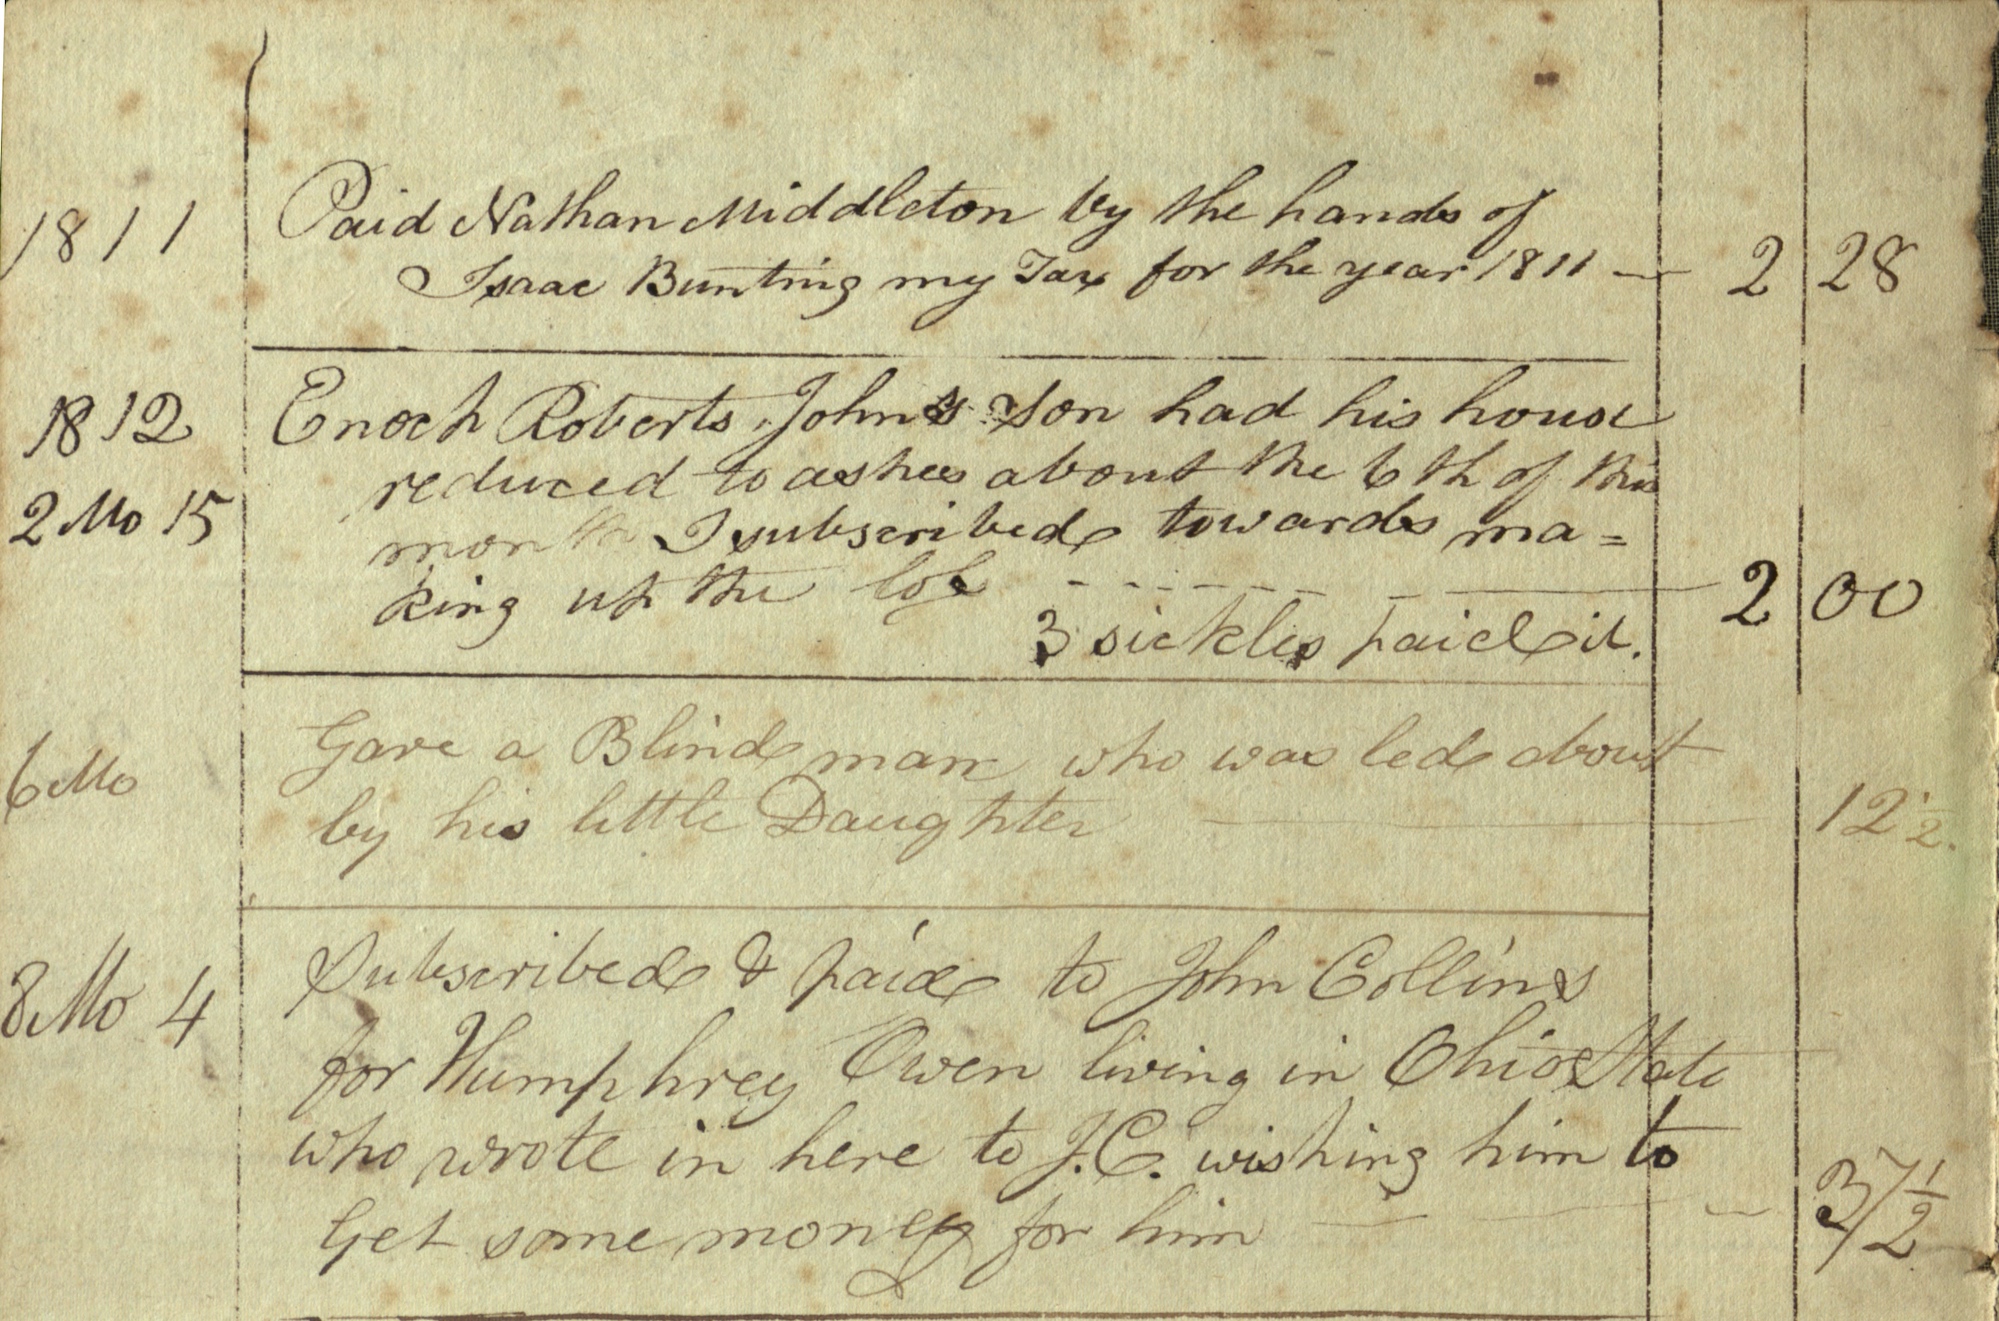 1811 Paid Nathan Middleton by the hands of
Isaac Bunting my Tax for the year 1811 — 2 | 28
1812 Enoch Roberts, John's Son had his house
2 Mo 15 reduced to ashes about the 6th of this
month I subscribed towards ma=
king up the loss - - - - 2 | 00
3 sickles paid it.
6 Mo Gave a Blind man who was led about
by his little Daughter — 12 1/2.
8 Mo 4 Subscribed & paid to John Collins
for Humphrey Owen living in Ohio State
who wrote in here to J.C. wishing him to
Get some money for him — — — 37 1/2